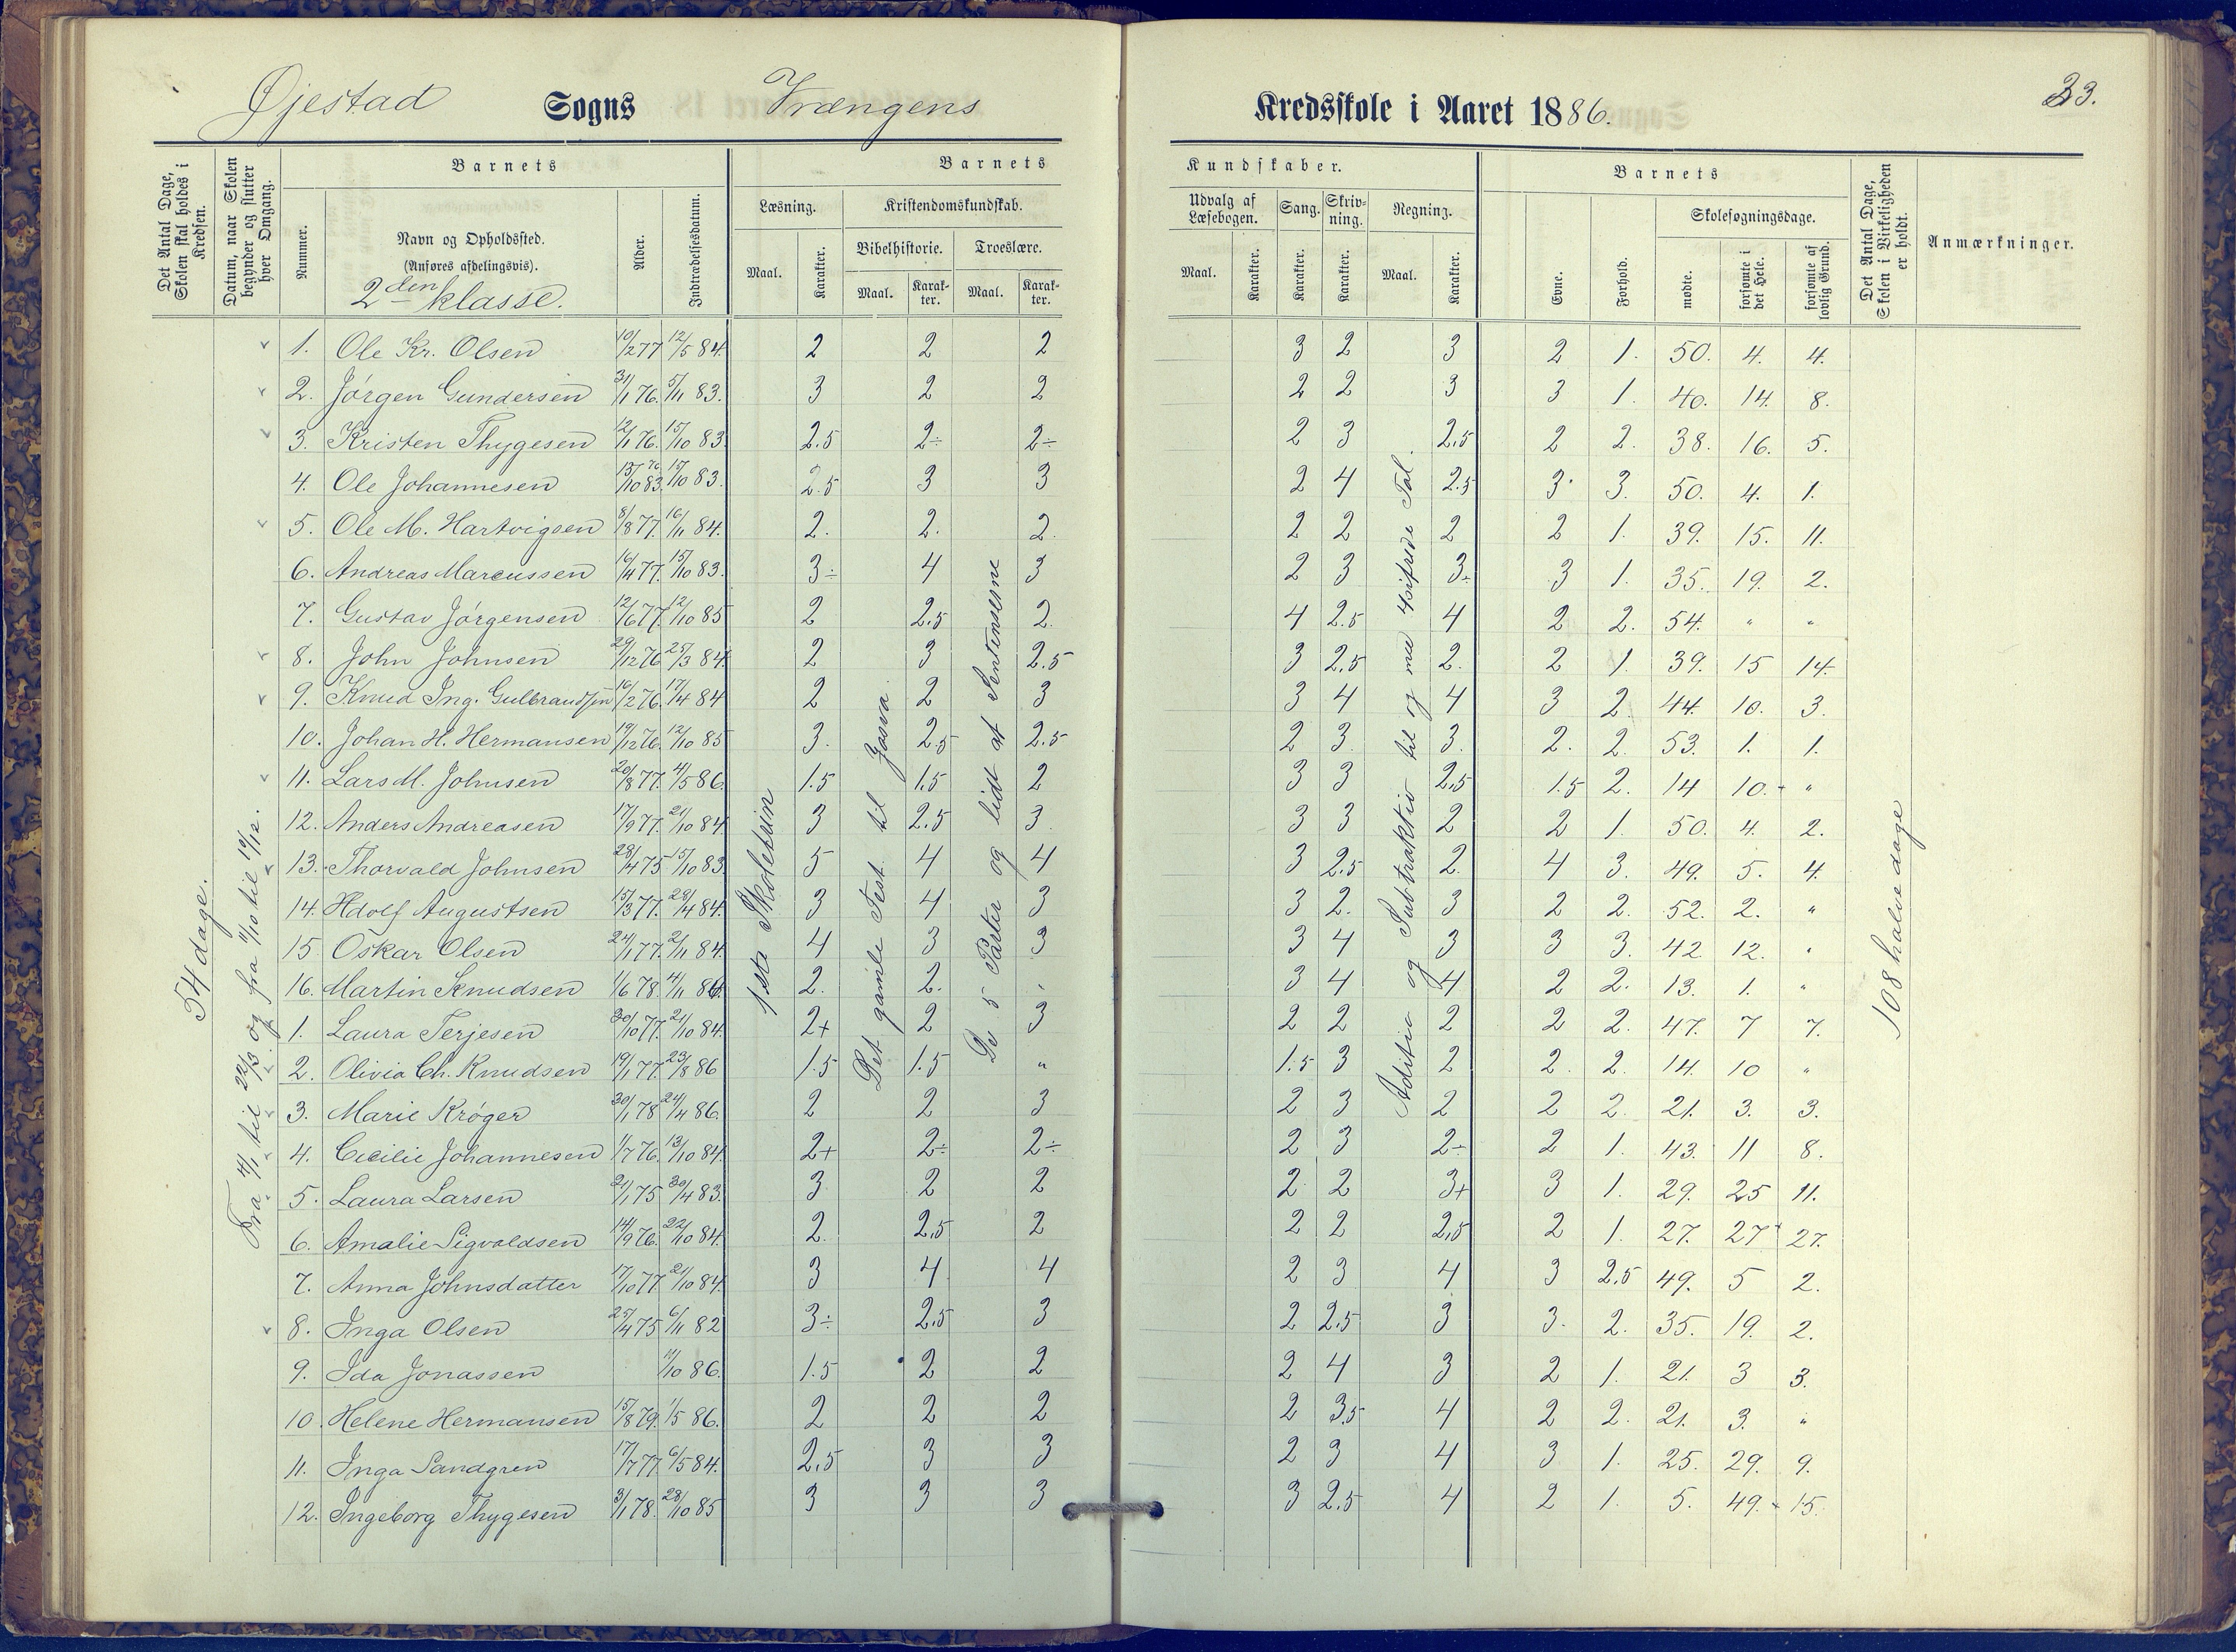 Øjestad Sogns Vrængens Kredsskole i Aaret 1886. 33.
Det Antal Dage, Skolen skal holdes i Kredsen.
Datum, naar Skolen begynder og slutter hver Omgang.
Barnets
Nummer.
Navn og Opholdssted.
(Anføres afdelingsvis).
2den klasse.
Alder.
Indtrædelsesdatum.
Barnets Kundskaber.
Læsning.
Maal. Karakter.
Kristendomskundskab.
Bibelhistorie. Troeslære.
Maal. Karakter. Maal. Karakter.
Udvalg af Læsebogen.
Maal. Karakter.
Sang. Karakter.
Skrivning. Karakter.
Regning.
Maal. Karakter.
Barnets
Evne. Forhold.
Skolesøgningsdage.
mødte. forsømte i det Hele. forsømte af lovlig Grund.
Det Antal Dage, Skolen i Virkeligheden er holdt.
Anmærkninger.
54 dage.
Fra 4/1 til 22/3 og fra 11/10 til 19/12.
1ste Skoletrin
Det gamle Test. til Josva.
De 5 Parter og lidt af Sentenserne
Aditio og Subtraktio til og med 4sifrede Tal.
108 halve dage
1. Ole Kr. Olsen 10/2 77 12/5 84. 2 2 2 3 2 3 2 1. 50. 4. 4.
2. Jörgen Gundersen 31/1 76. 5/11 83. 3 2 2 2 2 3 3 1. 40. 14. 8.
3. Kristen Thygesen 12/1 76. 15/10 83. 2.5 2÷ 2÷ 2 3 2,5 2 2. 38. 16. 5.
4. Ole Johannesen 13/10 83. 76 15/10 83. 2.5 3 3 2 4 2.5 3. 3. 50. 4. 1.
5. Ole M. Hartvigsen 8/8 77. 16/11 84. 2. 2. 2. 2 2 2 2 1. 39. 15. 11.
6. Andreas Marcussen 16/4 77. 15/10 83. 3÷ 4 3 2 3 3÷ 3 1. 35. 19. 2.
7. Gustav Jörgensen 12/6 77. 12/10 85 2 2,5 2. 4 2.5 4 2 2. 54. " "
8. John Johnsen 29/12 76 25/3 84. 2 3 2.5 3 2,5 2. 2 1. 39. 15 14.
9. Knud Ing. Gulbrandsen 16/2 76. 17/4 84 2 2 3 3 4 4 3 2. 44. 10. 3.
10. Johan H. Hermansen 19/12 76. 12/10 85 3. 2.5 2.5 2 3 3. 2. 2. 53. 1. 1.
11. Lars M. Johnsen 20/8 77. 4/5 86. 1.5 1.5 2 3 3 2,5 1.5 2. 14 10. "
12. Anders Andreasen 17/9 77. 21/10 84 3 2.5 3. 3 3 2 2 1. 50. 4. 2.
13. Thorvald Johnsen 28/4 75 15/10 83. 5 4 4 3 2.5 2. 4 3. 49. 5. 4.
14. Adolf Augustsen 15/3 77. 29/4 84. 3 4 3 3 2. 3 2 2. 52. 2. "
15 Oskar Olsen 24/1 77. 2/11 84. 4 3 3 3 4 3 3 3. 42 12. "
16. Martin Knudsen 1/6 78. 4/11 86. 2. 2. " 3 4 4 2 2. 13. 1. "
1. Laura Terjesen 30/10 77. 21/10 84. 2+ 2 3 2 2 2 2 2. 47. 7 7.
2. Olivia Ch. Knudsen 19/1 77. 23/8 86 1.5 1.5 " 1.5 3 2 2. 2. 14. 10 "
3. Marie Kröger 30/1 78 24/4 86. 2 2 3 2 3 2 2 2. 21. 3. 3.
4. Cicilie Johannesen 1/7 76. 13/10 84. 2+ 2÷ 2÷ 2 3 2÷ 2 1. 43. 11 8.
5. Laura Larsen 21/1 75 30/4 83. 3 2 2 2 2 3+ 3 1. 29. 25 11.
6. Amalie Sigvaldsen 14/9 76. 22/10 84. 2. 2,5 2 2 2 2,5 2 1. 27. 27 27.
7. Anna Johnsdatter 17/10 77 21/10 84. 3 4 4 2 3 4 3 2,5 49. 5 2.
8. Inga Olsen 25/4 75 6/11 82 3÷ 2,5 3 2 2.5 3 3. 2. 35. 19. 2.
9. Ida Jonassen 11/10 86. 1.5 2 2 2 4 3 2 1. 21. 3 3.
10. Helene Hermansen 15/8 79. 1/5 86. 2 2 2 2 3,5 4 2 2. 21. 3. "
11. Inga Sandgren 17/7 77. 6/5 84. 2,5 3 3 2 3 4 3 1. 25. 29. 9.
12. Ingeborg Thygesen 3/1 78. 28/10 85 3 3 3 3 2.5 4 2 1. 5. 49. 15.